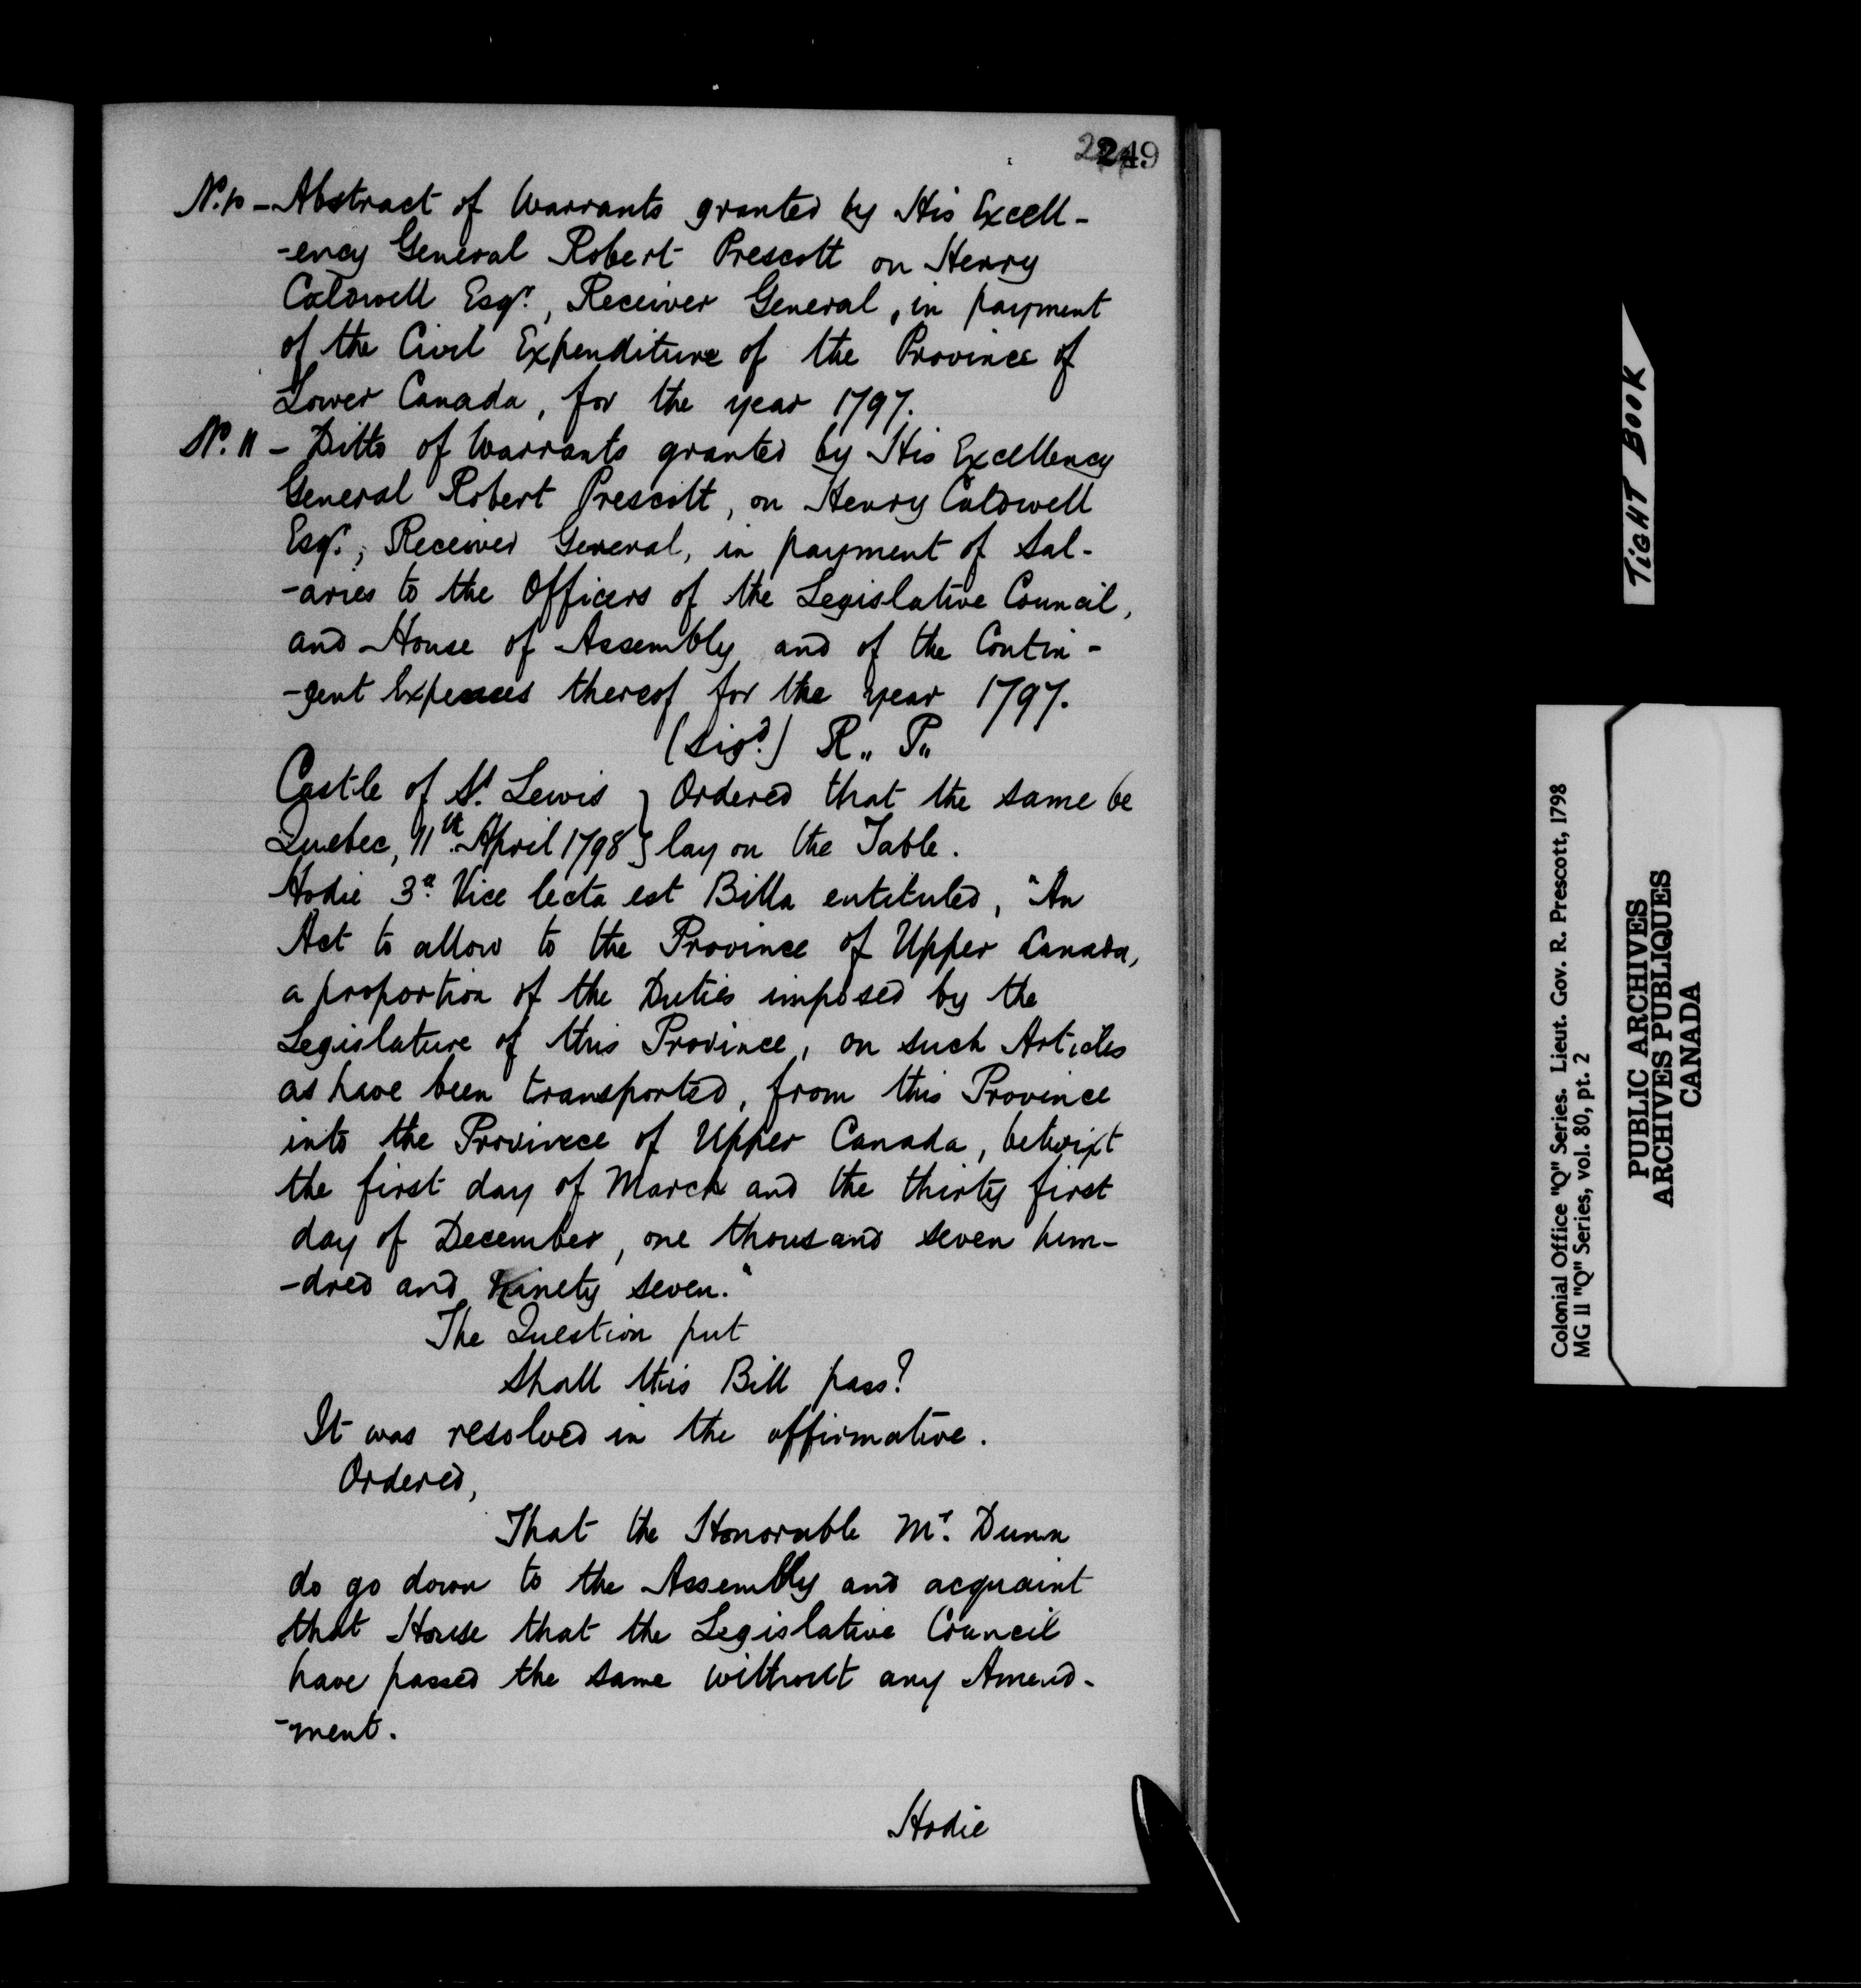 249
No. 10 - Abstract of Warrants granted by His Excell-
-ency General Robert Prescott on Henry
Caldwell Esqr., Receiver General, in payment
of the Civil Expenditure of the Province of
Lower Canada, for the year 1797.
No. 11 - Ditto of Warrants granted by His Excellency
General Robert Prescott, on Henry Caldwell
Esqr., Receiver General, in payment of Sal-
-aries to the Officers of the Legislative Council,
and House of Assembly and of the Contin-
-gent Expenses thereof for the year 1797.
(Sigd.) R,, P,,
Castle of St. Lewis } Ordered that the same be
Quebec, 11th. April 1798 } lay on the Table.
Hodie 3a. Vice lecta est Billa entituled, "An
Act to allow to the Province of Upper Canada,
a proportion of the Duties imposed by the
Legislature of this Province, on such Articles
as have been transported, from this Province
into the Province of Upper Canada, betwixt
the first day of March and the thirty first
day of December, one thousand seven hun-
-dred and Ninety seven."
The Question put
Shall this Bill pass?
It was resolved in the affirmative.
Ordered,
That the Honorable Mr. Dunn
do go down to the Assembly and acquaint
that House that the Legislative Council
have passed the same without any Amend-
-ment.
Hodie
TIGHT BOOK
Colonial Office "Q" Series. Lieut. Gov. R. Prescott, 1798
MG 11 "Q" Series, vol. 80, pt. 2
PUBLIC ARCHIVES
ARCHIVES PUBLIQUES
CANADA